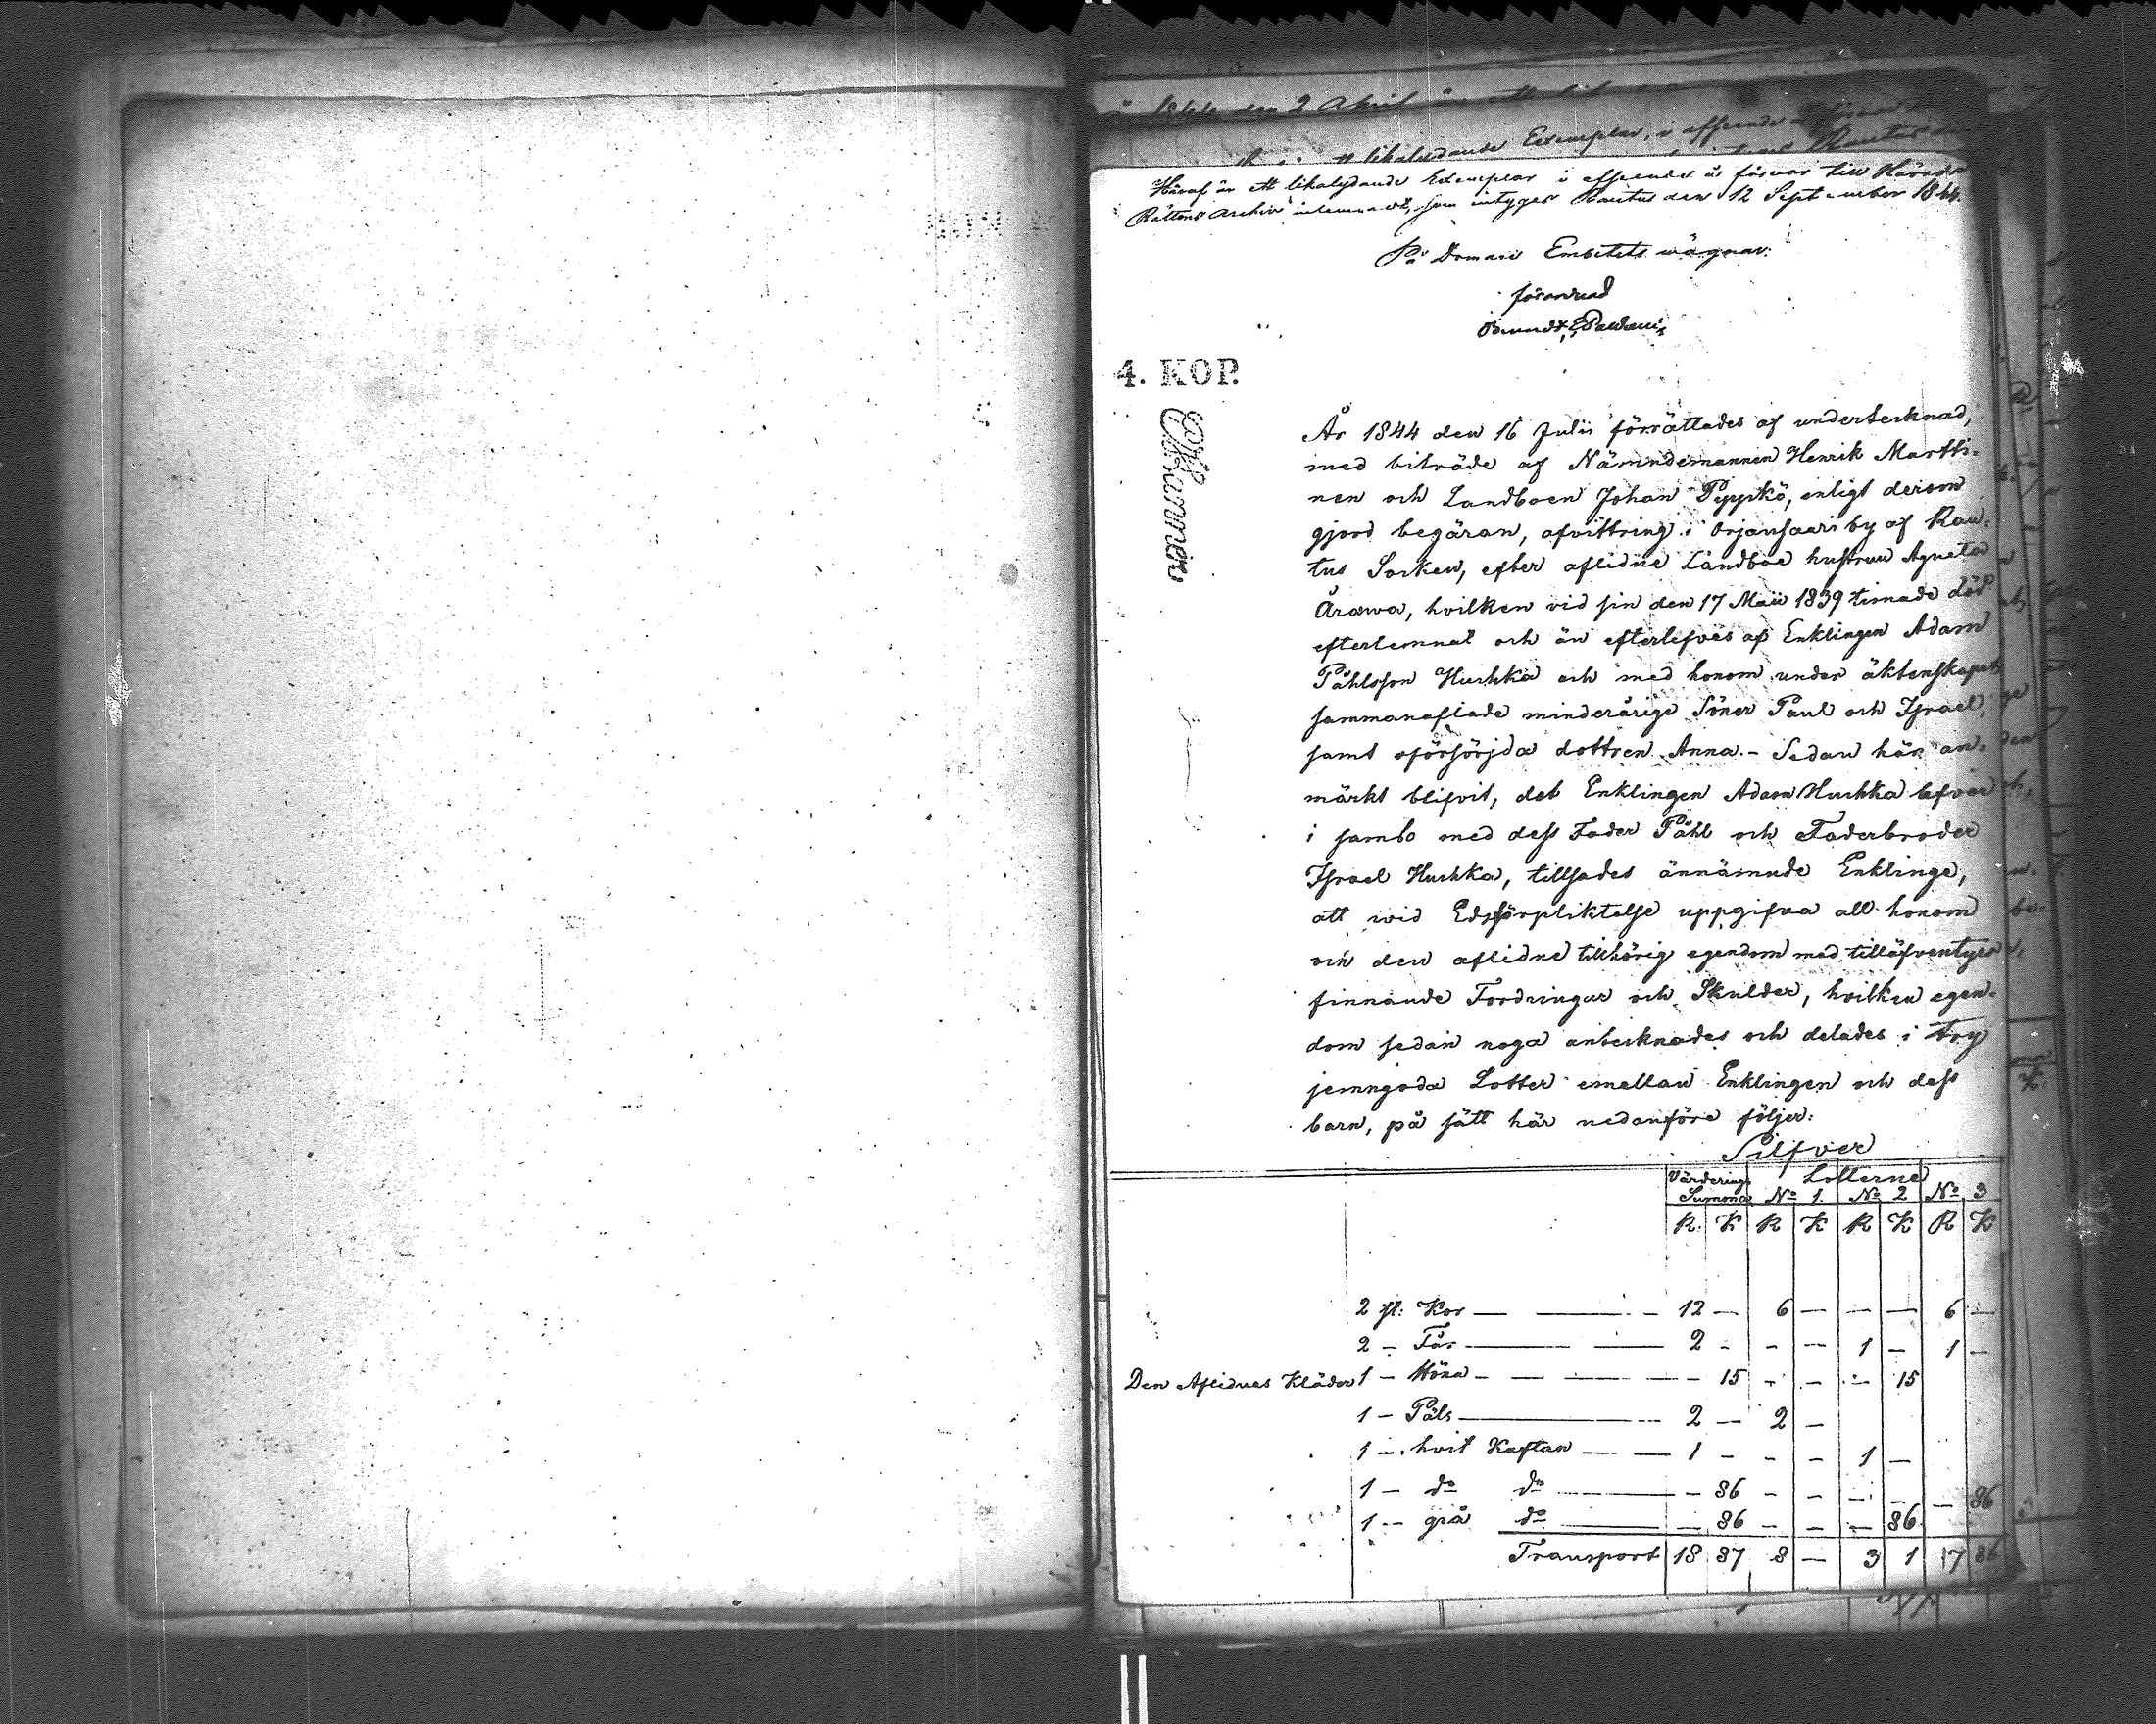 Häraf är ett likalydande Exemplar i afseende å förvar till Härads
Rättens Archiv intemnadt, som intyges Rautus den 12 September 1844.
På Domare Embetets wägnar:
förordnad
4. KOP.
År 1844 den 16 Julii förrättades af undertecknad,
med biträde af Nämndemannen Henrik Martti-
nen och Landboen Johan Pyykö, enligt derom
gjord begäran, afvittring i Orjansaari by af Rau-
tus Socken, efter aflidne Landboe hustrun Agneta
Ärawa, hvilken vid sin den 17 Maii 1839 timade död
efterlemnat och än efterlefves af Enklingen Adam
Påhlsson Huuhka och med honom under äktenskapet
sammanaflade minderårige Söner Paul och Israel,
samt oförsörjda dottren Anna. - Sedan här an-
märkt blifvit, det Enklingen Adam Huuhka lefver
i sambo med dess Fader Påhl och Faderbroder
Israel Huuhka, tillsades ännämnde Enklinge,
att wid Edsförpliktelse uppgifva all honom
och den aflidne tillhörig egendom med tilläfventyrs
finnande Fordringar och Skulder, hvilken egen-
dom sedan noga antecknades och delades i try
jemngoda Lotter emellan Enklingen och dess
barn, på sätt här nedanföre följer:
Silfver
Värderings Lotterne
Summa No 1. No 2 No 3
R. K R K R K R K
2 st: Kor — 12 — 6 — — — 6 —
2 — Får — 2 - - — 1 — 1 —
Den Aflidnes Kläder 1 — Höna — - 15 - - - 15
1 — Päls — 2 — 2 —
1 — hvit Kaftan — 1 - - - 1 —
1 — do do — - 86 - - - - — 86
1 — grå do — — 86 - - — 86
Transport 18 87 8 — 3 1 7 86